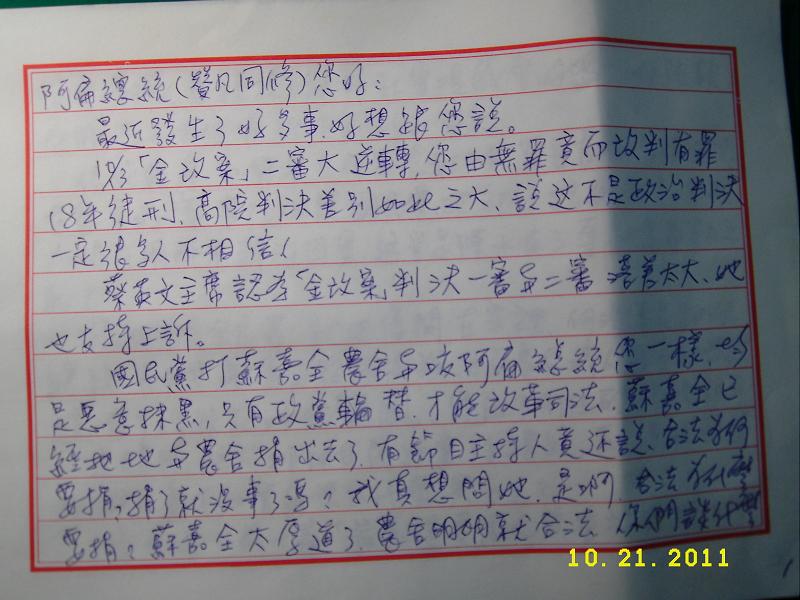 阿扁總統(贊凡同修)您好:
最近發生了好多事,好想跟您說。
10/3「金改案」二審大逆轉,您由無罪竟而改判有罪
18年徒刑,高院判決差別如此之大,說这不是政治判決
一定很多人不相信!
蔡英文主席認為「金改案」判決一審与二審落差太大、她
也支持上訴。
國民黨打蘇嘉全農舍与攻阿扁總統您一樣,均
是惡意抹黑,只有政黨輪替,才能改革司法,蘇嘉全已
經把地与農舍捐出去了,有節目主持人竟还說、合法為何
要捐,捐了就沒事了嗎?我真想問她,是啊,合法為什麼
要捐?蘇嘉全太厚道了,農舍明明就合法 你們談什麼
10.21.2011
1